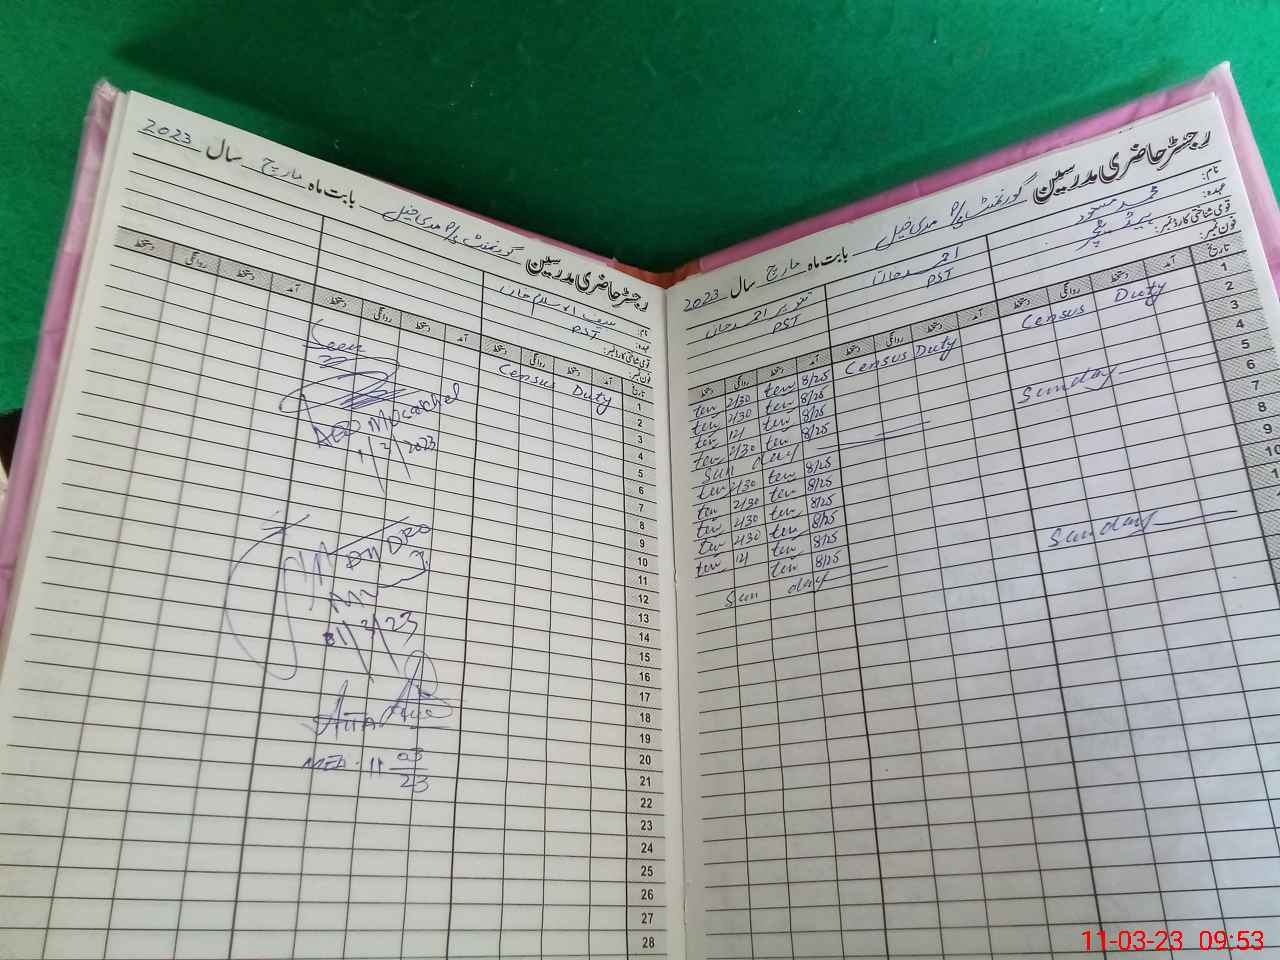 رجسٹر حاضری مدرسین گورنمنٹ P/S مدی خیل بابت ماہ مارچ سال 2023
نام: محمد مسعود
عہدہ: ہیڈ ٹیچر
قومی شناختی کارڈ نمبر:
فون نمبر:
احمد جان
PST
تنویر احمد جان
PST
تاریخ آمد دستخط روانگی دستخط آمد دستخط روانگی دستخط آمد دستخط روانگی دستخط
1 Census Duty Census Duty 8/25 ten 2/30 ten
2 8/25 ten 2/30 ten
3 8/25 ten 12 ten
4 8/25 ten 2/30 ten
5 Sunday Sun day
6 8/25 ten 2/30 ten
7 8/25 ten 2/30 ten
8 8/25 ten 2/30 ten
9 8/25 ten 2/30 ten
10 8/25 ten 12 ten
8/25 ten
Sunday Sun day
رجسٹر حاضری مدرسین گورنمنٹ P/S مدی خیل بابت ماہ مارچ سال 2023
نام: سیف الاسلام جان
عہدہ: PST
قومی شناختی کارڈ نمبر:
فون نمبر:
تاریخ آمد دستخط روانگی دستخط آمد دستخط روانگی دستخط آمد دستخط روانگی دستخط
1 Census Duty
2
3
4
5
6
7
8
9
10
11
12
13
14
15
16
17
18
19
20
21
22
23
24
25
26
27
28
Seen
1/2/2023
3/23
03
23
11-03-23 09:53